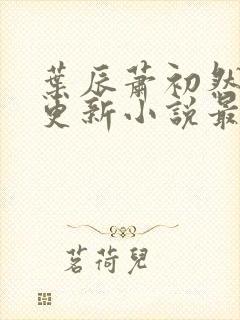 葉辰蕭初然
更新小說最
茗荷兒